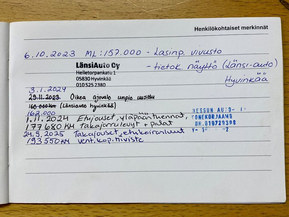 Henkilökohtaiset merkinnät
6.10.2023 ML:157.000 - Lasinp. vivusto
- tietok näyttö (Länsi-auto)
Hyvinkää
LänsiAuto Oy
Helletorpankatu 1
05830 Hyvinkää
010 525 2380
3.1.2024
Oikea ajovalo umpio uusittu
160 000 km (Länsiauto Hyvinkää)
162.000
1.11.2024 Etujouset, yläpään
177 680 KM Takajarrulevyt + palat
24.3.2025 Takajouset, etukoiranluut
193550 KM vent.kop.tiiviste
VESSAN AUTO-
KONEKORJAAMO